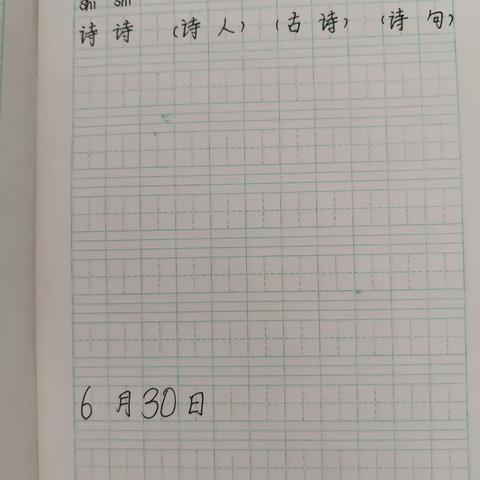 shi shi
诗 诗 (诗 人) (古 诗) (诗 句)
6 月 30 日